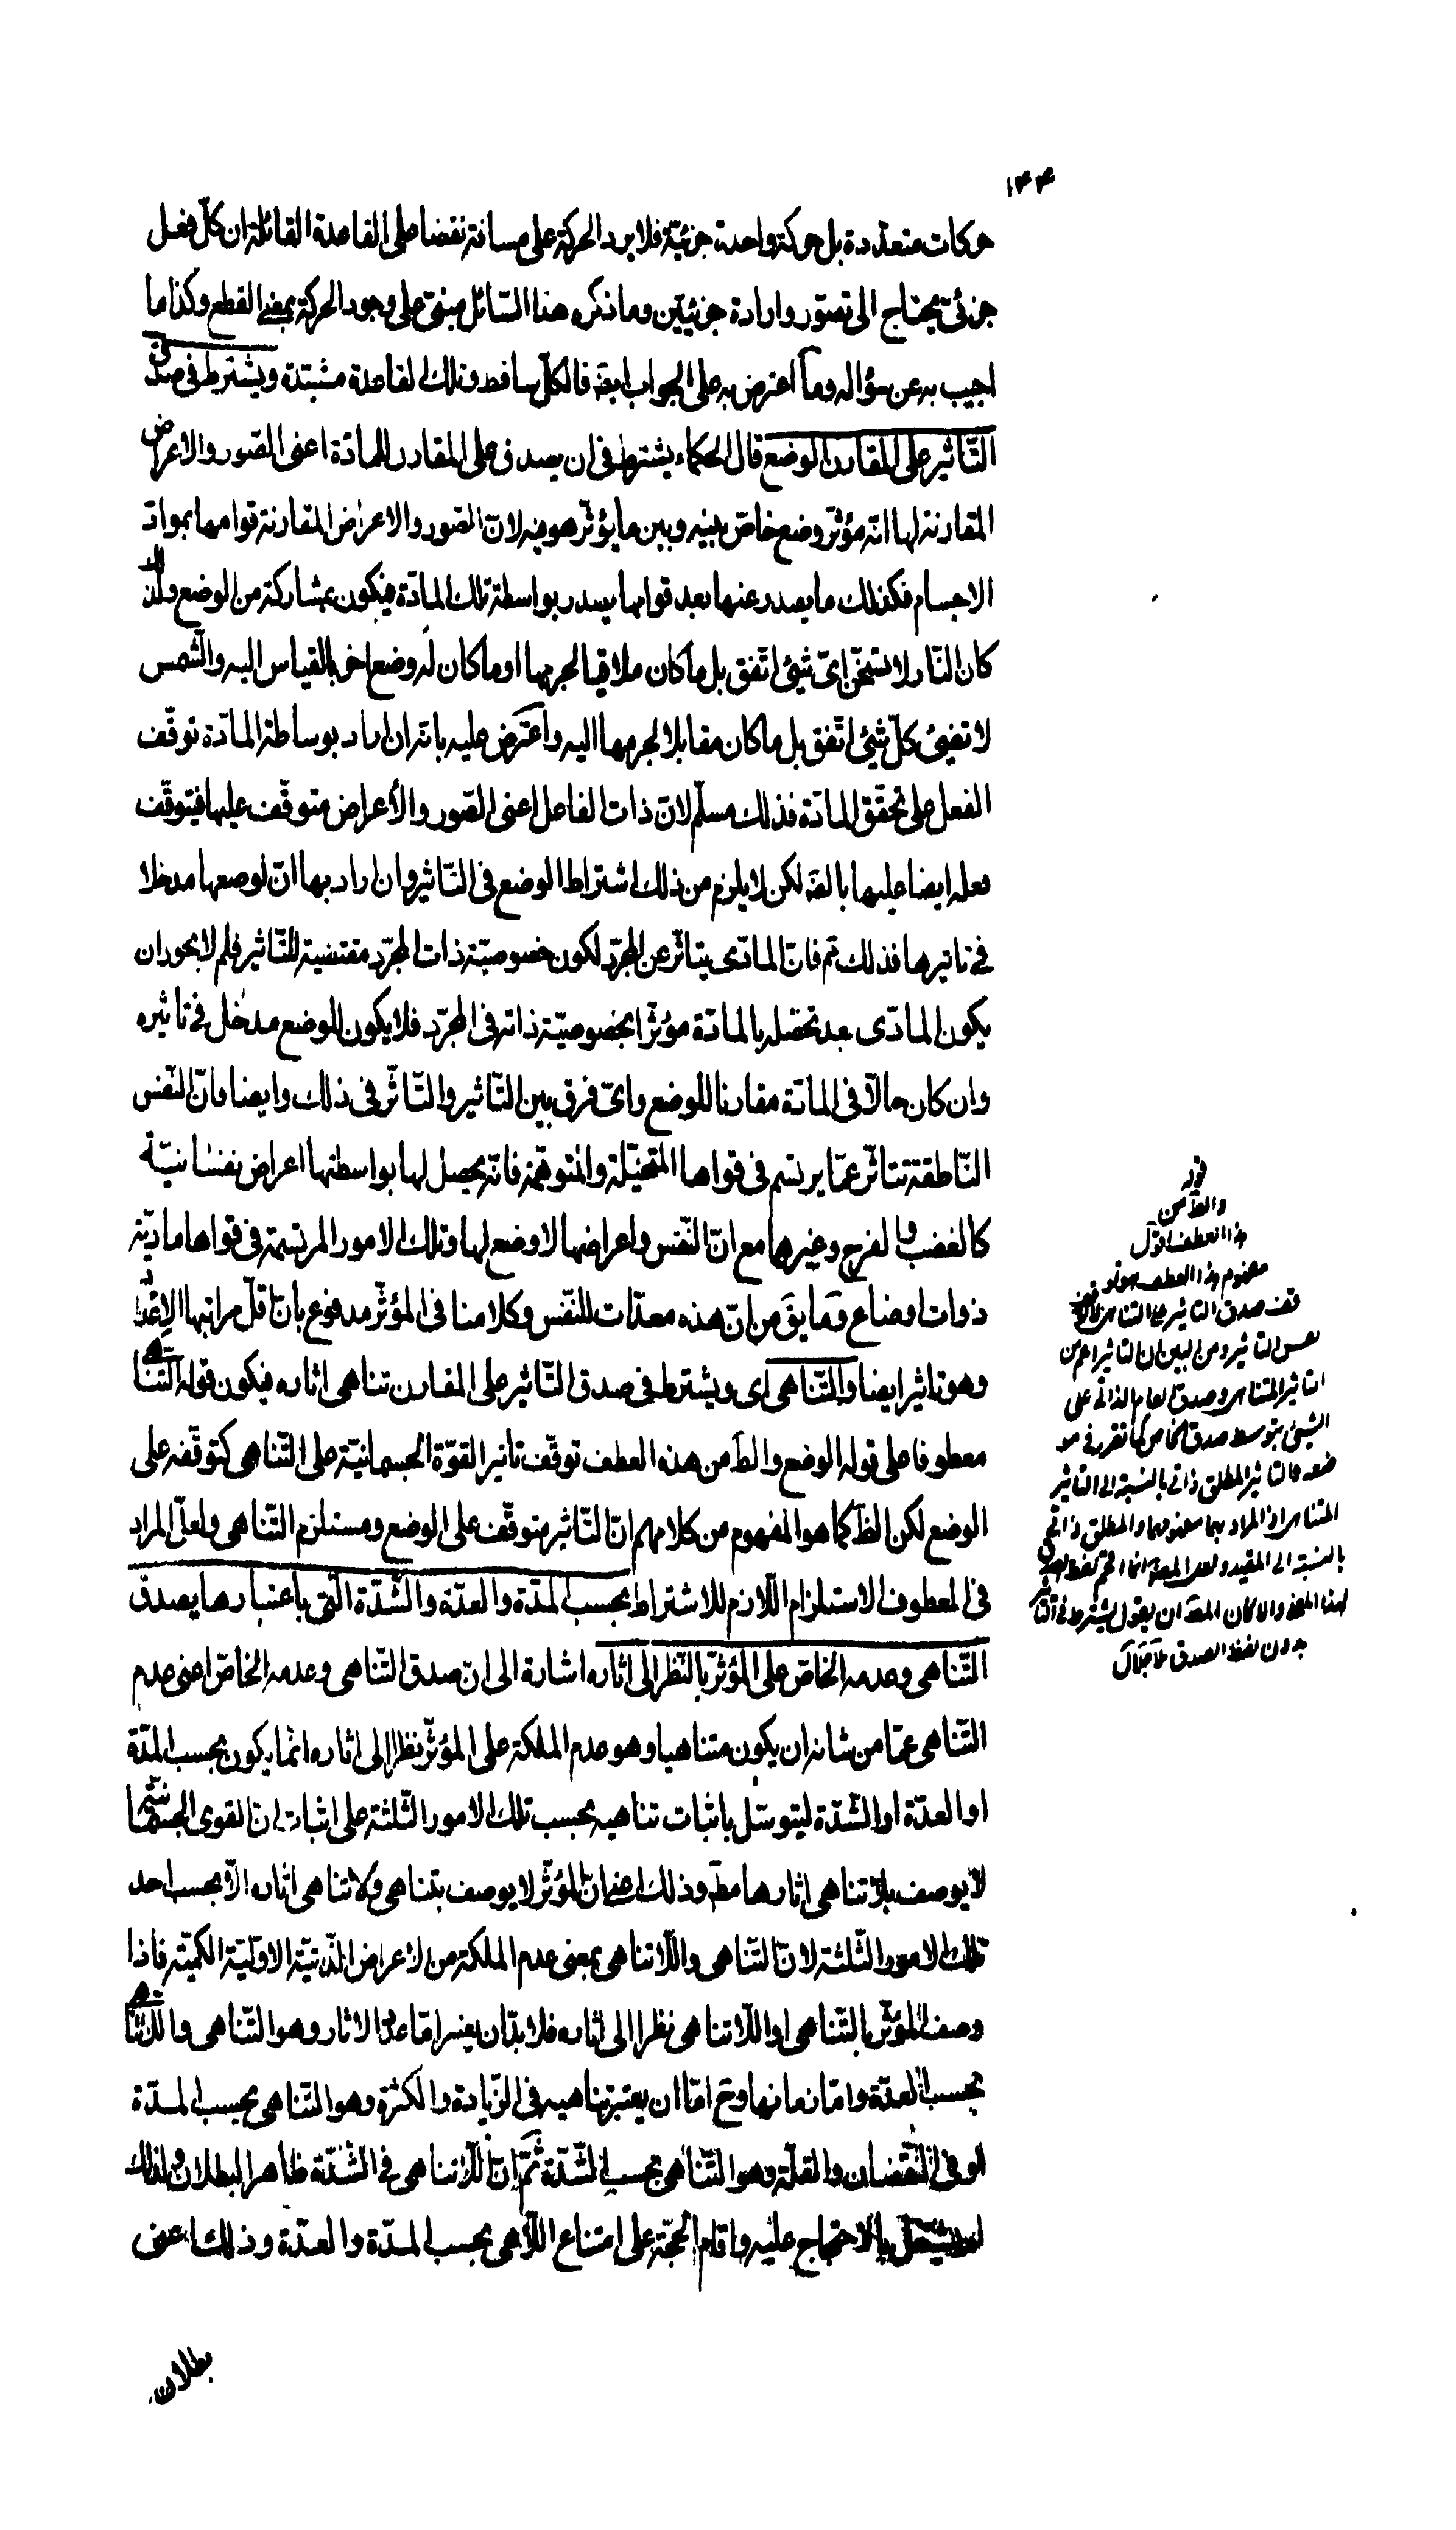 ١٤٤
حركات متعدّدة بل حركة واحدة جزئيّة فلا يرد الحركة على مسافة نقضا على القاعدة القائلة ان كلّ فعل
جزئى يحتاج الى تصوّر وارادة جزئيّين وما ذكره هذا السّائل مبنىّ على وجود الحركة بمعنى القطع وكذا ما
اجيب به عن سؤاله وما اعترض به على الجواب ايضا فالكلّ ساقط وتلك القاعدة مشيّدة ويشترط فى صدق
التّأثير على المقارن الوضع قال الحكماء يشترط فى ان يصدق على المقارن للمادّة اعنى الصّور والاعراض
المقارنة لها انّه مؤثّر وضع خاصّ بينه وبين ما يؤثّر هو فيه لانّ الصّور والاعراض المقارنة قوامها بموادّ
الاجسام فكذلك ما يصدر عنها بعد قوامها يصدر بواسطة تلك المادّة فيكون بمشاركة من الوضع ولذلك
كان النّار لا تسخّن اىّ شىء اتّفق بل ما كان ملاقيا لجرمها او ما كان له وضع اخر بالقياس اليه والشّمس
لا تضىء كلّ شىء اتّفق بل ما كان مقابلا لجرمها اليه واعترض عليه بانّه ان اراد بوساطة المادّة توقّف
الفعل على تحقّق المادّة فذلك مسلّم لانّ ذات الفاعل اعنى الصّور والأعراض متوقّف عليها فيتوقّف
فعله ايضا عليها بالضرة لكن لا يلزم من ذلك اشتراط الوضع فى التّاثير وان اراد بها انّ لوضعها مدخلا
فى تاثيرها فذلك تم فانّ المادّى يتاثّر عن المجرّد لكون خصوصيّة ذات المجرّد مقتضية للتّاثير فلم لا يجوز ان
يكون المادّى بعد تحصّله بالمادّة مؤثّرا بخصوصيّة ذاته فى المجرّد فلا يكون للوضع مدخل فى تاثيره
وان كان حالّا فى المادّة مقارنا للوضع واىّ فرق بين التّاثير والتّاثّر فى ذلك وايضا فانّ النّفس
النّاطقة تتاثّر عمّا يرتسم فى قواها المتخيّلة والمتوهّمة فانّه يحصل لها بواسطتها اعراض نفسانيّة
كالغضب والفرح وغيرها مع انّ النّفس واعراضها لا وضع لها وتلك الامور المرتسمة فى قواها مادّيّة
ذوات اوضاع وما يقَ من انّ هذه معدّات للنّفس وكلامنا فى المؤثّر مدفوع بانّ اقلّ مراتبها الاعداد
وهو تاثير ايضا والتّناهى اى ويشترط فى صدق التّاثير على المقارن تناهى اثاره فيكون قوله التّناهى
معطوفا على قوله الوضع والظّ من هذه العطف توقّف تاثير القوّة الجسمانيّة على التّناهى كتوقّفه على
الوضع لكن الظّ كما هو المفهوم من كلامهم انّ التّاثير متوقّف على الوضع ومستلزم التّناهى ولعلّ المراد
فى المعطوف الاستلزام اللّازم للاشتراط بحسب المدّة والعدّة والشّدّة الّتى باعتبارها يصدق
التّناهى وعدمه الخاصّ على المؤثّر بالنّظر الى اثاره اشارة الى انّ صدق التّناهى وعدمه الخاصّ اعنى عدم
التّناهى عمّا من شانه ان يكون متناهيا وهو عدم الملكة على المؤثّر نظرا الى اثاره انّما يكون بحسب المدّة
او العدّة او الشّدّة ليتوسّل باثبات تناهيه بحسب تلك الامور الثّلثة على اثبات انّ القوى الجسمانيّة
لا يوصف بلا تناهى اثارها مطَ وذلك اعنى انّ المؤثّر لا يوصف بتناهى ولا تناهى اثاره الّا بحسب احد
تلك الامور الثّلثة لانّ التّناهى واللّاتناهى بمعنى عدم الملكة من الاعراض الذّاتيّة الاوّليّة الكميّة فاذا
وصف المؤثّر بالتّناهى او اللّاتناهى نظرا الى اثاره فلا بدّ ان يعتبر امّا عدد الاثار وهو التّناهى واللّاتناهى
بحسب العدّة وامّا زمانها وح امّا ان يعتبر تناهيه فى الزّيادة والكثرة وهو التّناهى بحسب المدّة
او فى النّقصان والقلّة وهو التّناهى بحسب الشّدّة ثمّ انّ اللّاتناهى فى الشّدّة ظاهر البطلان ولذلك
لم يشتغل بالاحتجاج عليه واقام الحجّة على امتناع اللّاتناهى بحسب المدّة والعدّة وذلك اعنى
بطلان
قوله
والظّ من
هذا العطف اقول
مفهوم هذا العطف هو تو
قف صدق التاثير على التناهى
نفس التاثير ومن البين ان التاثير اعم من
التاثير المتناهى وصدق العام الذاتى على
الشيئ بتوسط صدق الخاص كما تقرر فى مو
ضعه فالتاثير المطلق ذاتى بالنسبة الى التاثير
المتناهى اذ المراد بهما مفهومهما والمطلق ذاتى
بالنسبة الى المقيد ولعل المصّ انما اقحم لفظ الصدق
لهذا المعنى والا كان المصّ ان يقول يشترط فى التاثير
بدون لفظ الصدق